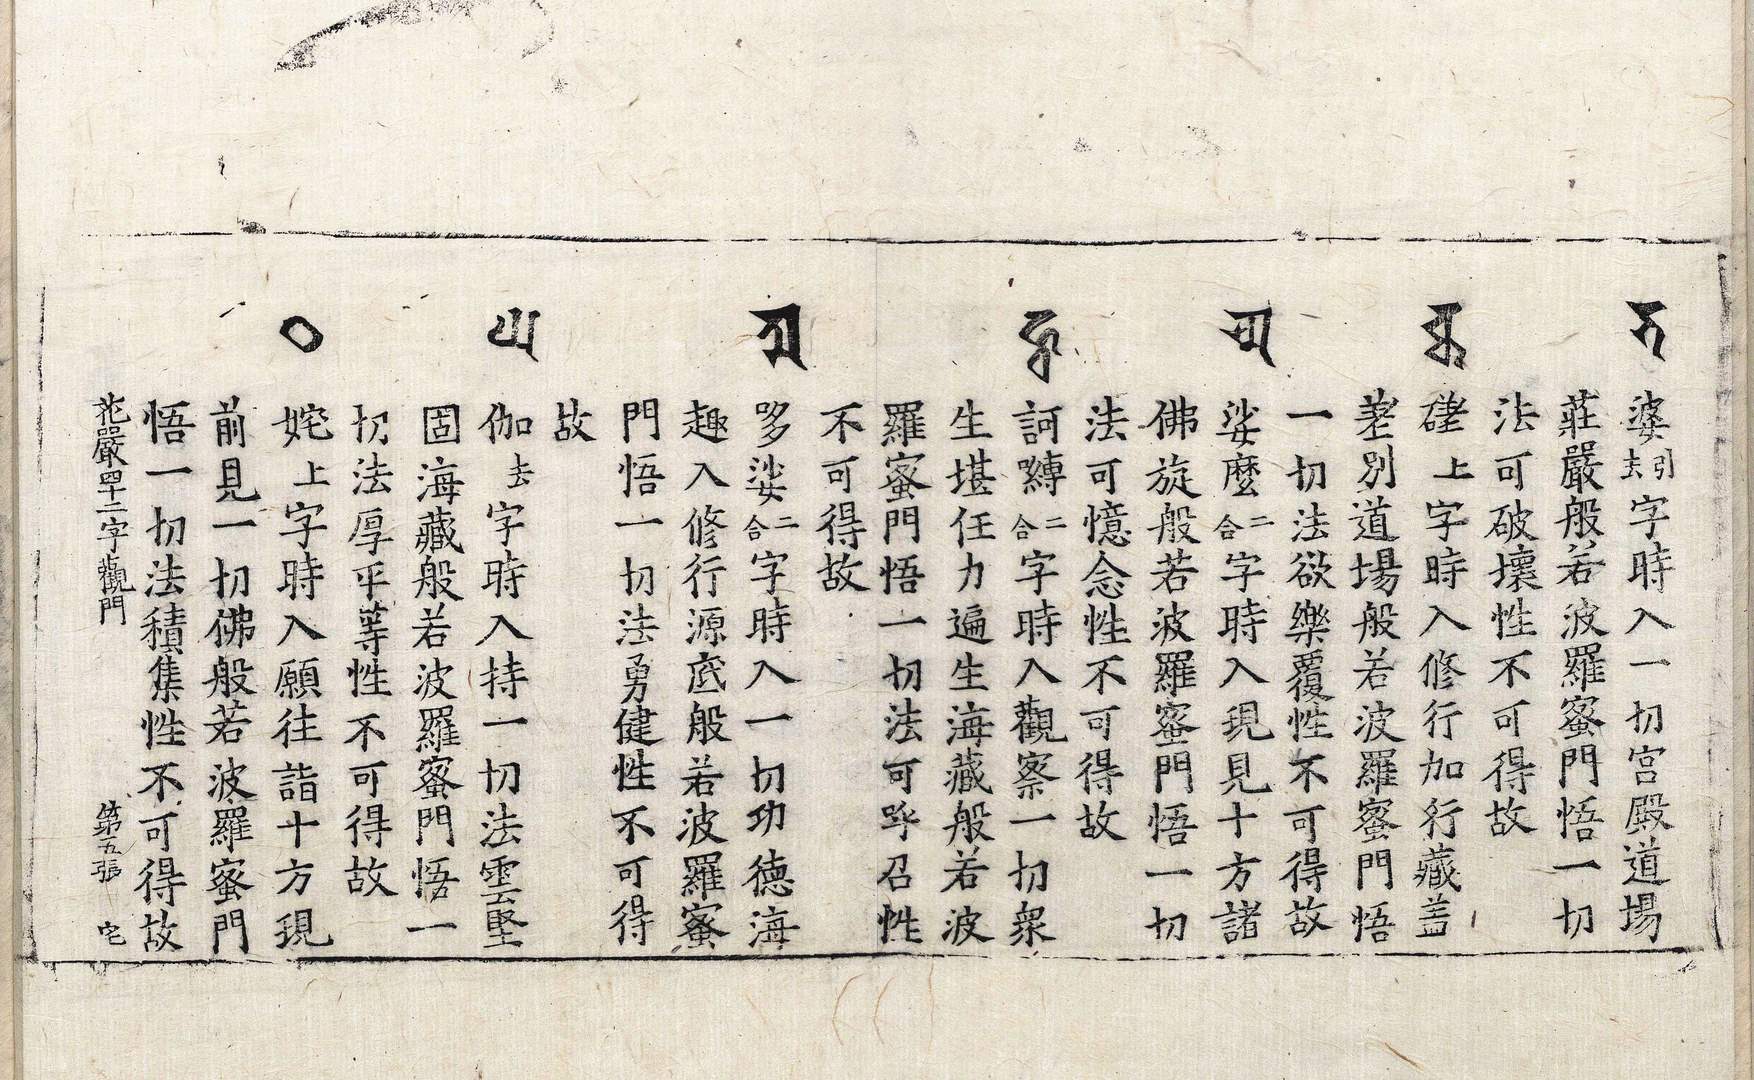 婆引去字時入一切宮殿道場
莊嚴般若波羅蜜門悟一切
法可破壞性不可得故
磋上字時入修行加行藏盖
差別道場般若波羅蜜門悟
一切法欲樂覆性不可得故
娑麼二合字時入現見十方諸
佛旋般若波羅蜜門悟一切
法可憶念性不可得故
訶嚩二合字時入觀察一切衆
生堪任力遍生海藏般若波
羅蜜門悟一切法可呼召性
不可得故
哆娑二合字時入一切功德海
趣入修行源底般若波羅蜜
門悟一切法勇健性不可得
故
伽去字時入持一切法雲堅
固海藏般若波羅蜜門悟一
切法厚平等性不可得故
姹上字時入願往詣十方現
前見一切佛般若波羅蜜門
悟一切法積集性不可得故
花嚴四十二字觀門 第五張 宅